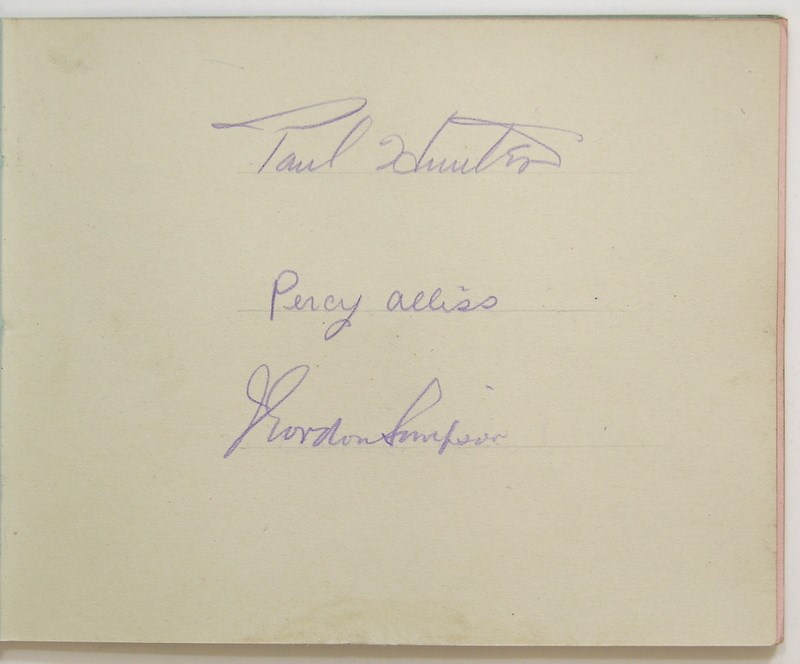 Paul Hunter
Percy alliss
J Gordon Simpson